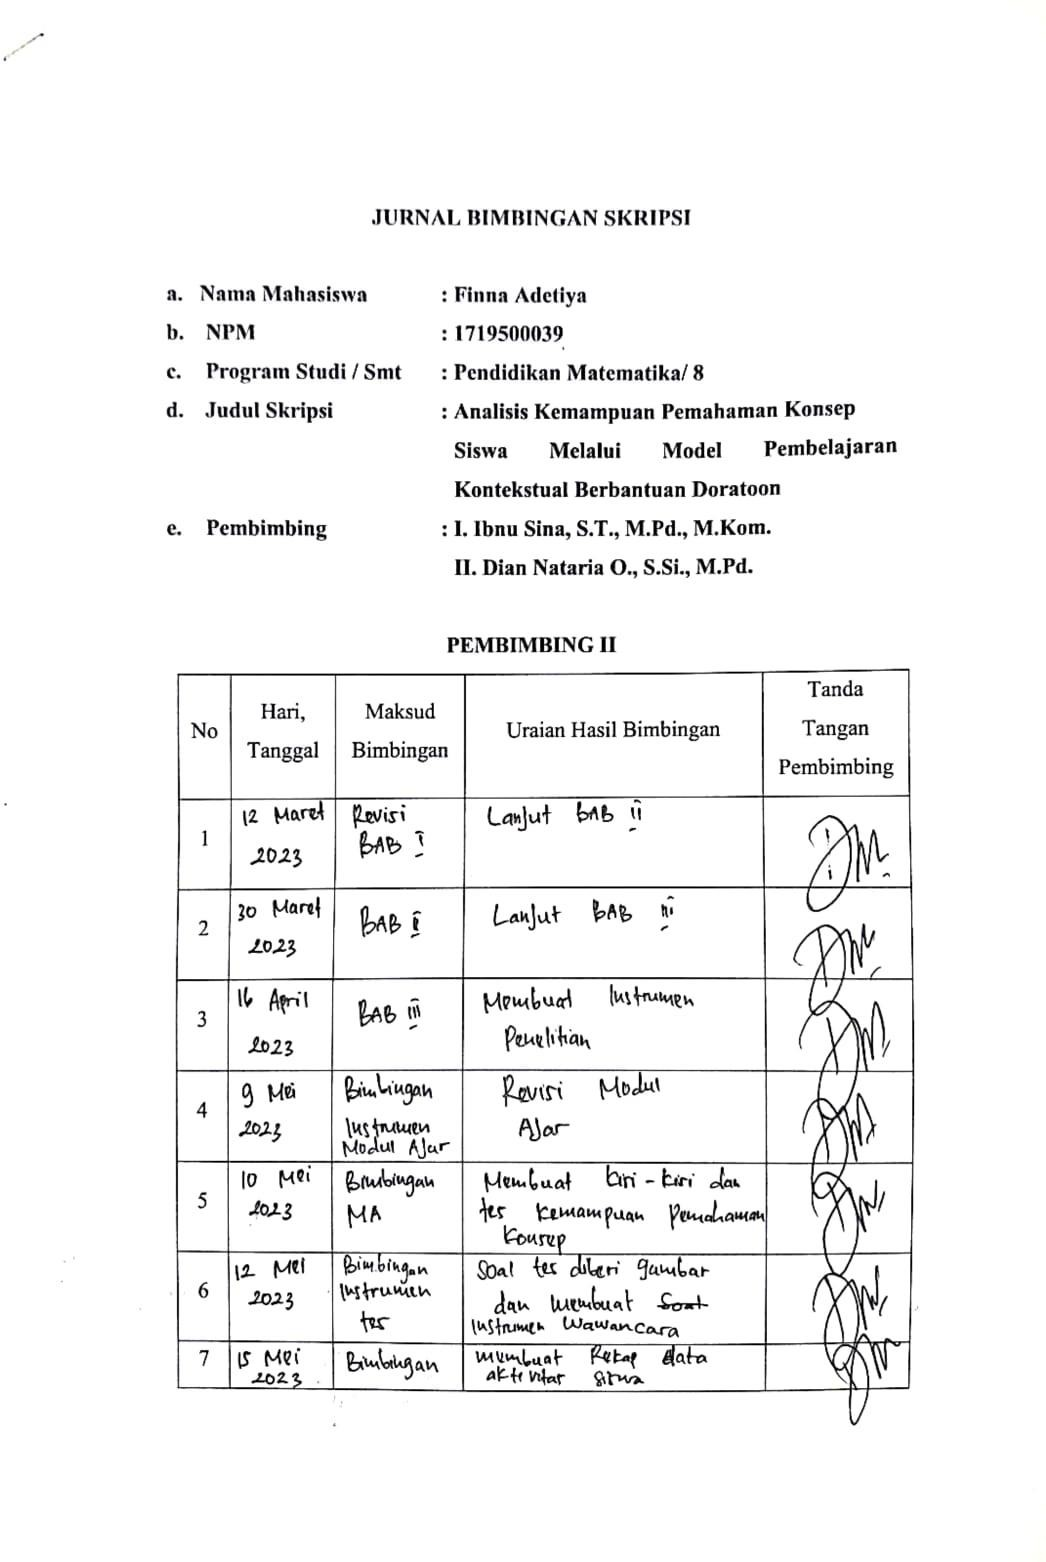 JURNAL BIMBINGAN SKRIPSI
a. Nama Mahasiswa : Finna Adetiya
b. NPM : 1719500039
c. Program Studi / Smt : Pendidikan Matematika/ 8
d. Judul Skripsi : Analisis Kemampuan Pemahaman Konsep
Siswa Melalui Model Pembelajaran
Kontekstual Berbantuan Doratoon
e. Pembimbing : I. Ibnu Sina, S.T., M.Pd., M.Kom.
II. Dian Nataria O., S.Si., M.Pd.
PEMBIMBING II
No
Hari,
Tanggal
Maksud
Bimbingan
Uraian Hasil Bimbingan
Tanda
Tangan
Pembimbing
1
12 Maret
2023
Revisi
BAB I
Lanjut BAB II
2
30 Maret
2023
BAB II
Lanjut BAB III
3
16 April
2023
BAB III
Membuat Instrumen
Penelitian
4
9 Mei
2023
Bimbingan
Instrumen
Modul Ajar
Revisi Modul
Ajar
5
10 Mei
2023
Bimbingan
MA
Membuat kiri - kiri dan
tes kemampuan Pemahaman
Konsep
6
12 Mei
2023
Bimbingan
Instrumen
tes
Soal tes diberi gambar
dan membuat Soal
Instrumen Wawancara
7
15 Mei
2023
Bimbingan
membuat Rekap data
aktivitas siswa